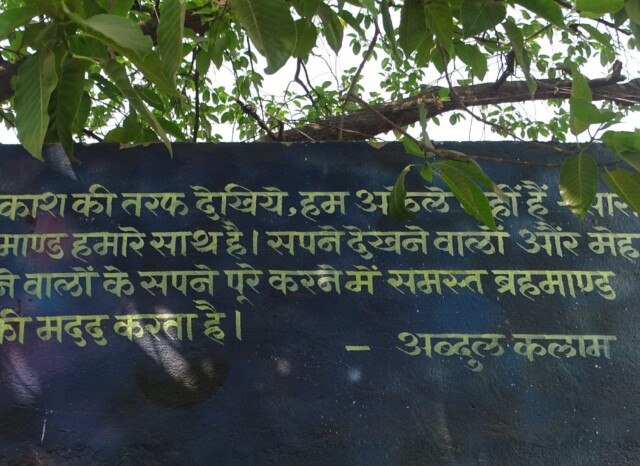 काश की तरफ देखिये, हम अकेले नहीं हैं
माण्ड हमारे साथ है। सपने देखने वालों और मेह
ने वालों के सपने पूरे करने में समस्त ब्रहमाण्ड
की मदद करता है।
– अब्दुल कलाम